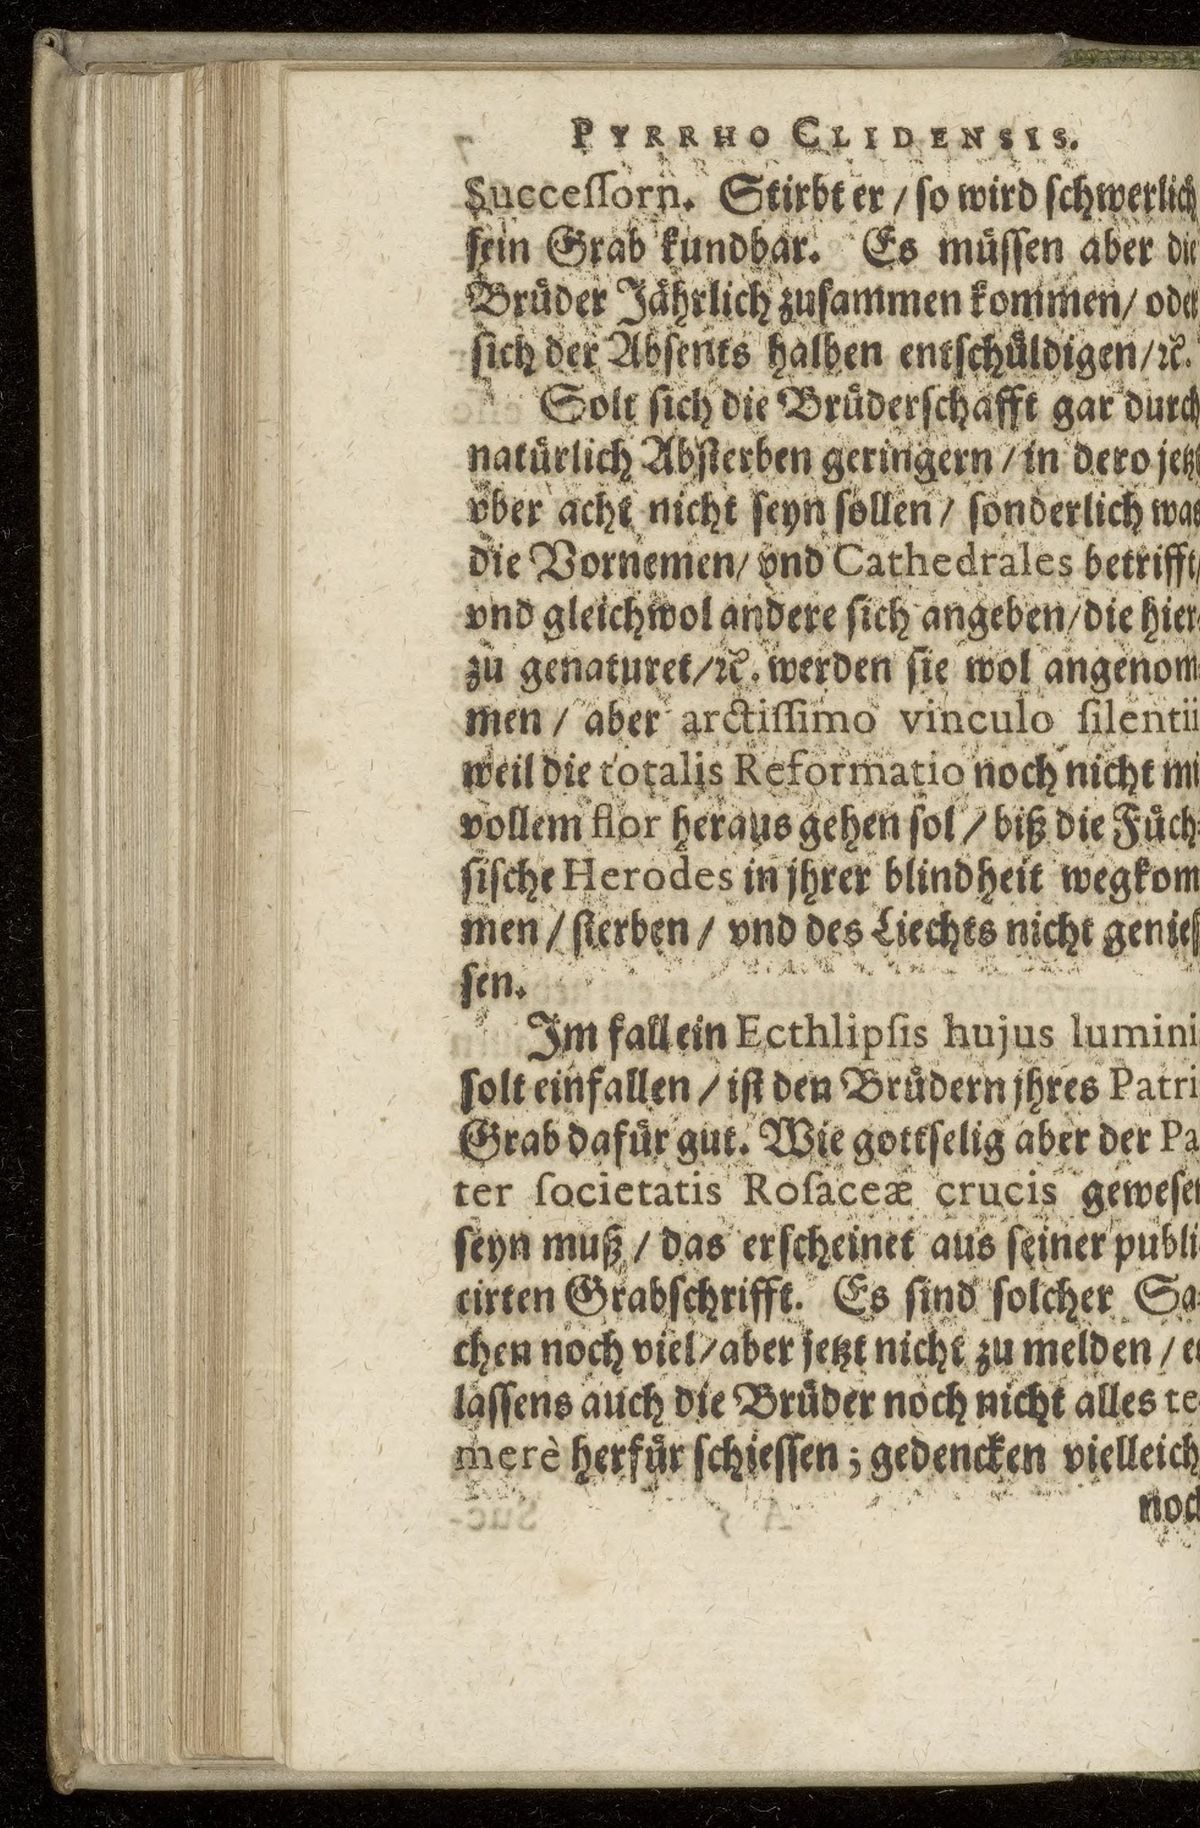 PYRRHO CLIDENSIS.
Succeſſorn. Stirbt er / ſo wird ſchwerlich
ſein Grab kundbar. Es müſſen aber die
Brüder Jährlich zuſammen kommen / oder
ſich der Abſents halben entſchüldigen / ꝛc.
Solt ſich die Brüderſchafft gar durch
natürlich Abſterben geringern / in dero jetzt
vber acht nicht ſeyn ſollen / ſonderlich was
die Vornemen / vnd Cathedrales betrifft /
vnd gleichwol andere ſich angeben / die hier-
zu genaturet / ꝛc. werden ſie wol angenom-
men / aber arctiſſimo vinculo ſilentii
weil die totalis Reformatio noch nicht mit
vollem flor heraus gehen ſol / biß die Füch-
ſiſche Herodes in jhrer blindheit wegkom
men / ſterben / vnd des Liechts nicht genieſ
ſen.
Im fall ein Ecthlipſis hujus lumini
ſolt einfallen / iſt den Brüdern jhres Patri
Grab dafür gut. Wie gottſelig aber der Pa
ter ſocietatis Roſaceæ crucis geweſen
ſeyn muß / das erſcheinet aus ſeiner publi
cirten Grabſchrifft. Es ſind ſolcher Sa-
chen noch viel / aber jetzt nicht zu melden / es
laſſens auch die Brüder noch nicht alles te-
merè herfür ſchieſſen ; gedencken vielleich
noch